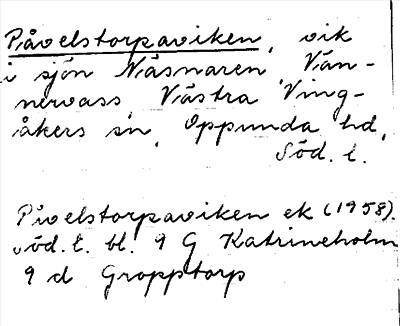 Påvelstorpaviken, vik
i sjön Näsnaren, Vän-
nevass, Västra Ving-
åkers sn, Oppunda hd,
Söd. l.
Påvelstorpaviken ek (1958).
Söd. l. bl. 9 G Katrineholm
9 d Gropptorp